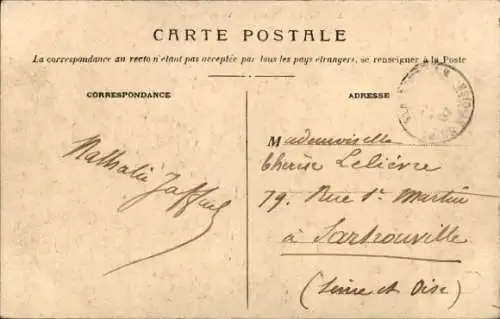 CARTE POSTALE
La correspondance au recto n'étant pas acceptée par tous les pays étrangers, se renseigner à la Poste
CORRESPONDANCE
ADRESSE
Nathalie
Mademoiselle
Thérèse Lelièvre
79. Rue St Martin
à Sartrouville
(Seine et Oise)